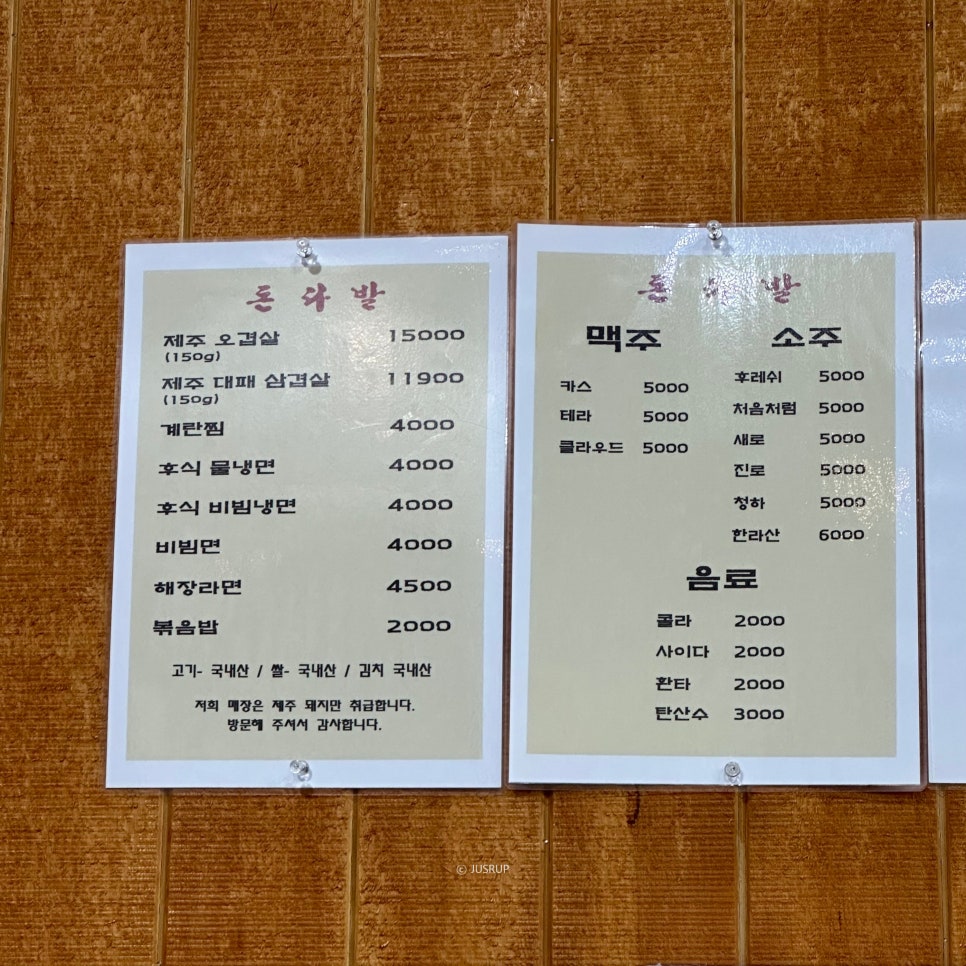 돈다발
제주 오겹살 15000
(150g)
제주 대패 삼겹살 11900
(150g)
계란찜 4000
후식 물냉면 4000
후식 비빔냉면 4000
비빔면 4000
해장라면 4500
볶음밥 2000
고기- 국내산 / 쌀- 국내산 / 김치 국내산
저희 매장은 제주 돼지만 취급합니다.
방문해 주셔서 감사합니다.
돈다발
맥주
카스 5000
테라 5000
클라우드 5000
소주
후레쉬 5000
처음처럼 5000
새로 5000
진로 5000
청하 5000
한라산 6000
음료
콜라 2000
사이다 2000
환타 2000
탄산수 3000
© JUSRUP